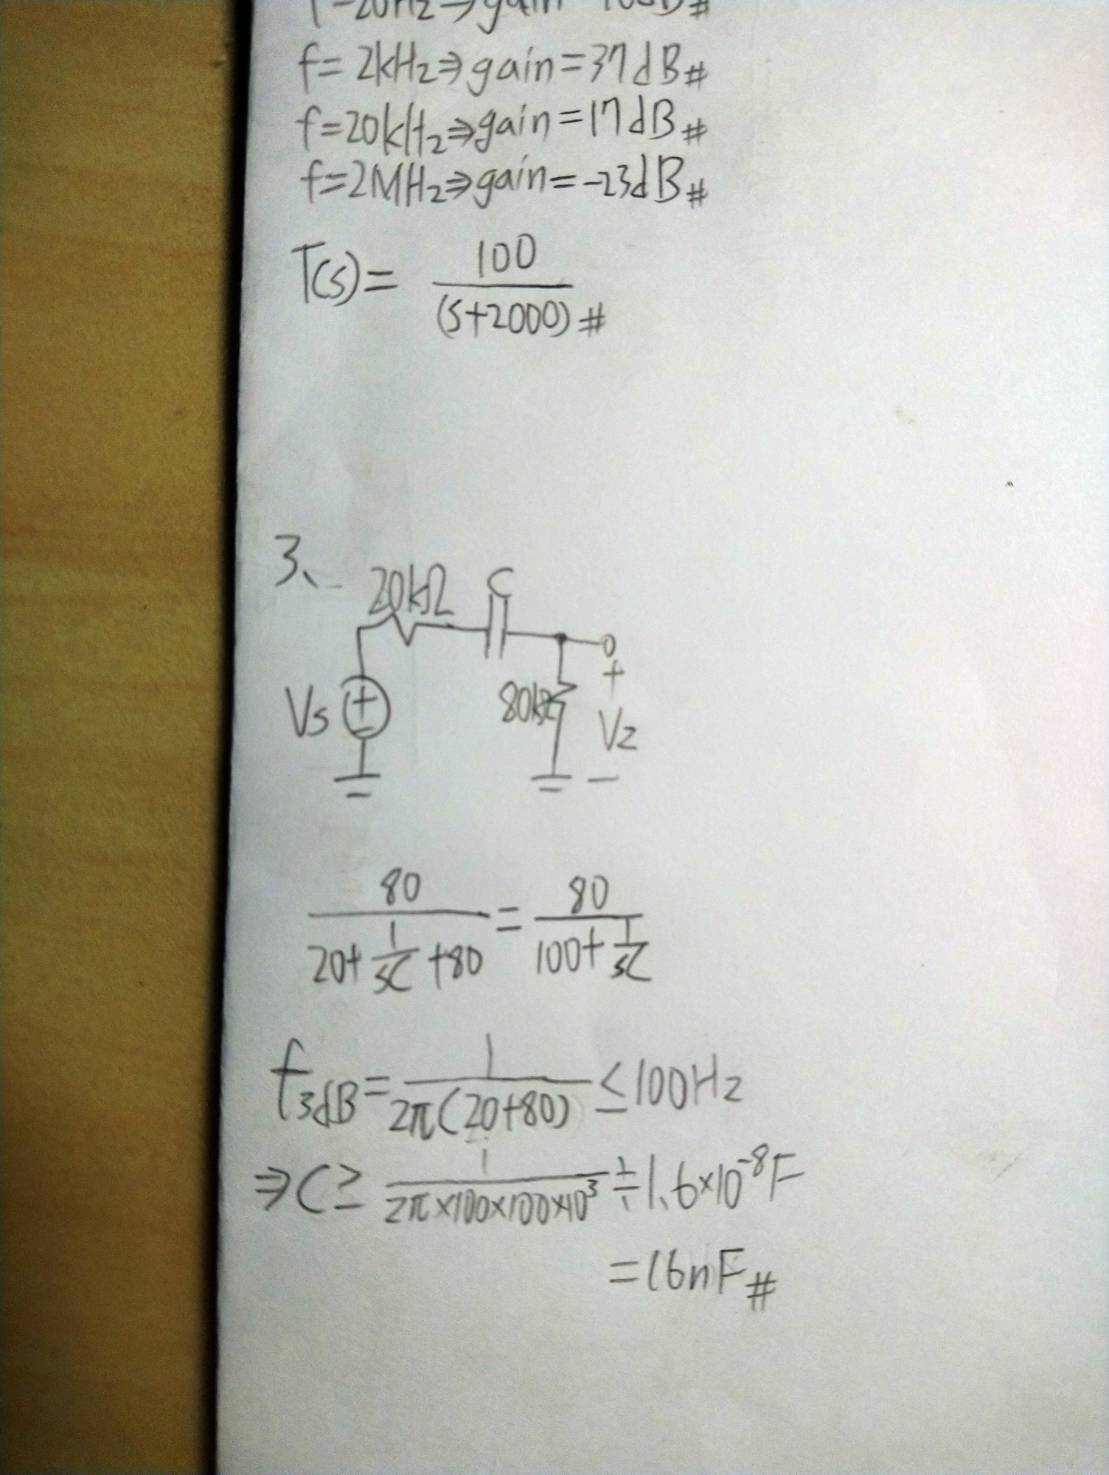 f=2kHz⇒gain=37dB#
f=20kHz⇒gain=17dB#
f=2MHz⇒gain=-23dB#
T(s)= 100/(s+2000) #
3、
20kΩ C
Vs + - 80kΩ + V2 -
80/(20+1/sC+80) = 80/(100+1/sC)
f3dB= 1/2π(20+80) ≤100Hz
⇒C≥ 1/2π×100×100×10³ ≒1.6×10⁻⁸F
=16nF#